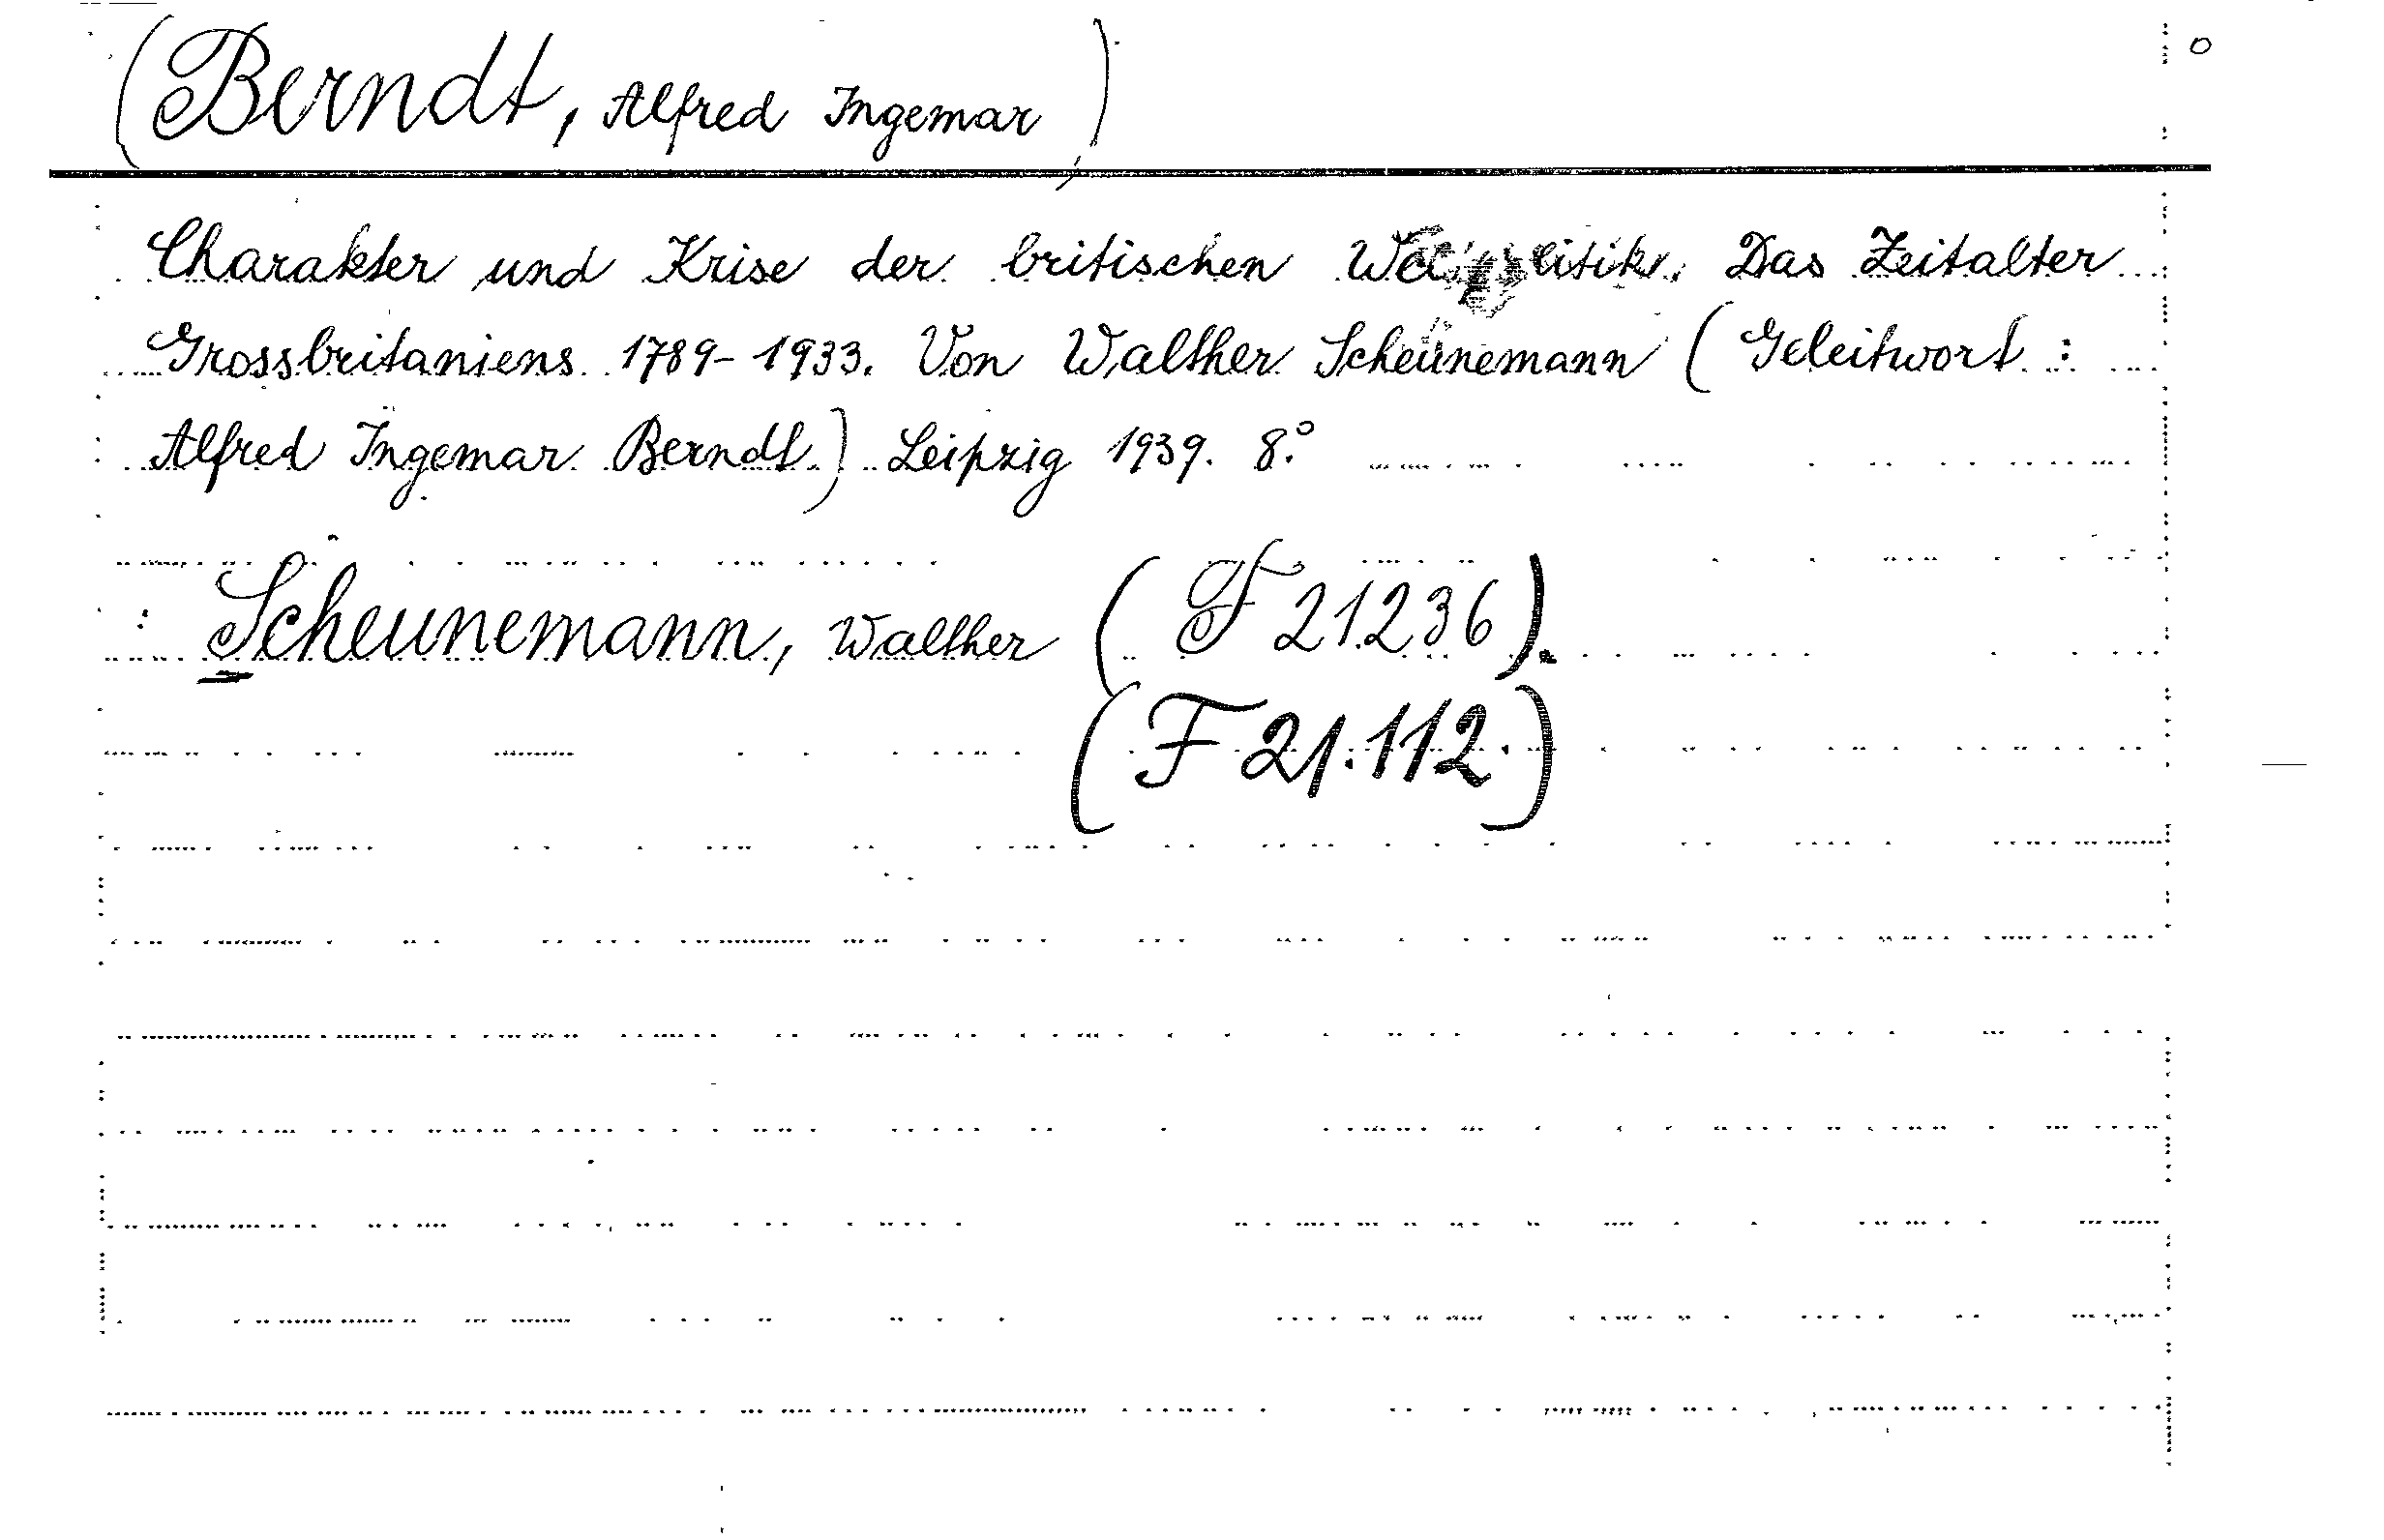 (Berndt, Alfred Ingemar)
Charakter und Krise der britischen Das Zeitalter
Grossbritaniens 1789-1933. Von Walther Scheunemann (Geleitwort :
Alfred Ingemar Berndt) Leipzig 1939. 8.°
: Scheunemann, Walther (F 21.236).
(F 21.112.)